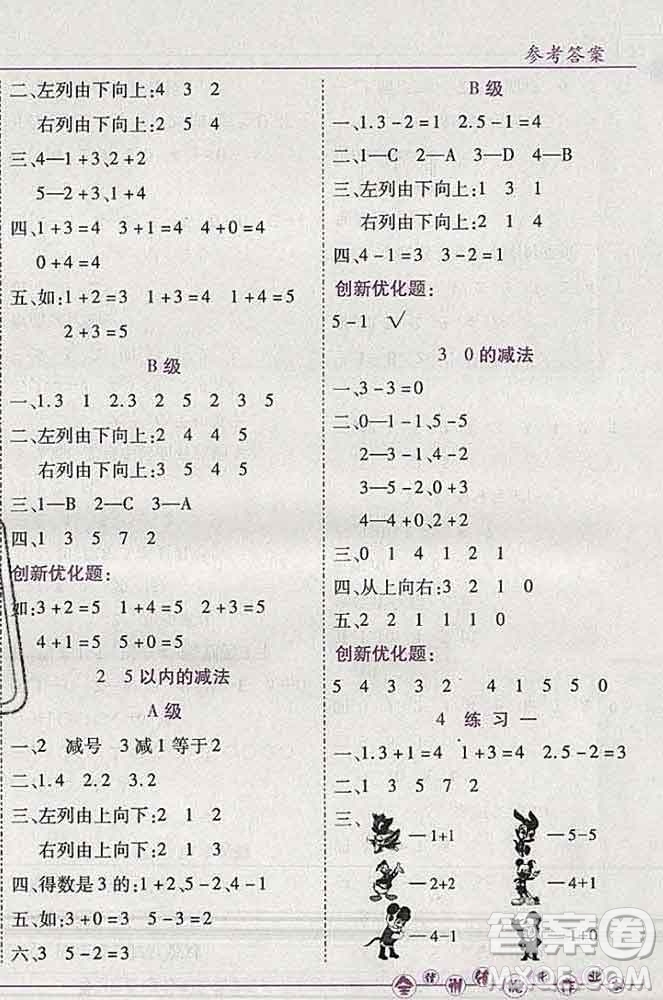 参考答案
二、左列由下向上:4 3 2
右列由下向上:2 5 4
三、4—1+3、2+2
5—2+3、1+4
四、1+3=4 3+1=4 4+0=4
0+4=4
五、如:1+2=3 1+3=4 1+4=5
2+3=5
B级
一、1.3 1 2.3 2 5 2 3 5
二、左列由下向上:2 4 4 5
右列由下向上:2 4 4 5
三、1—B 2—C 3—A
四、1 3 5 7 2
创新优化题:
如:3+2=5 1+4=5 2+3=5
4+1=5 5+0=5
2 5以内的减法
A级
一、2 减号 3减1等于2
二、1.4 2.2 3.2
三、左列由上向下:2 1 2
右列由上向下:2 1 3
四、得数是3的:1+2、5-2、4-1
五、如:3+0=3 5-2=3
六、3 5-2=3
B级
一、1.3-2=1 2.5-1=4
二、1—C 2—A 3—D 4—B
三、左列由下向上:1 3 1
右列由下向上:2 1 4
四、4-1=3 3-2=1
创新优化题:
5-1 √
3 0的减法
一、3-3=0
二、0—1-1、5-5
2—3-1、5-3
3—5-2、4-1
4—4-0、2+2
三、0 1 4 1 2 1
四、从上向右:3 2 1 0
五、2 2 1 1 1 0
创新优化题:
5 4 3 3 2 4 1 5 5 0
4 练习一
一、1.3+1=4 1+3=4 2.5-2=3
二、1 3 5 7 2
三、
—1+1 —5-5
—2+2 —4+1
—4-1
答案圈